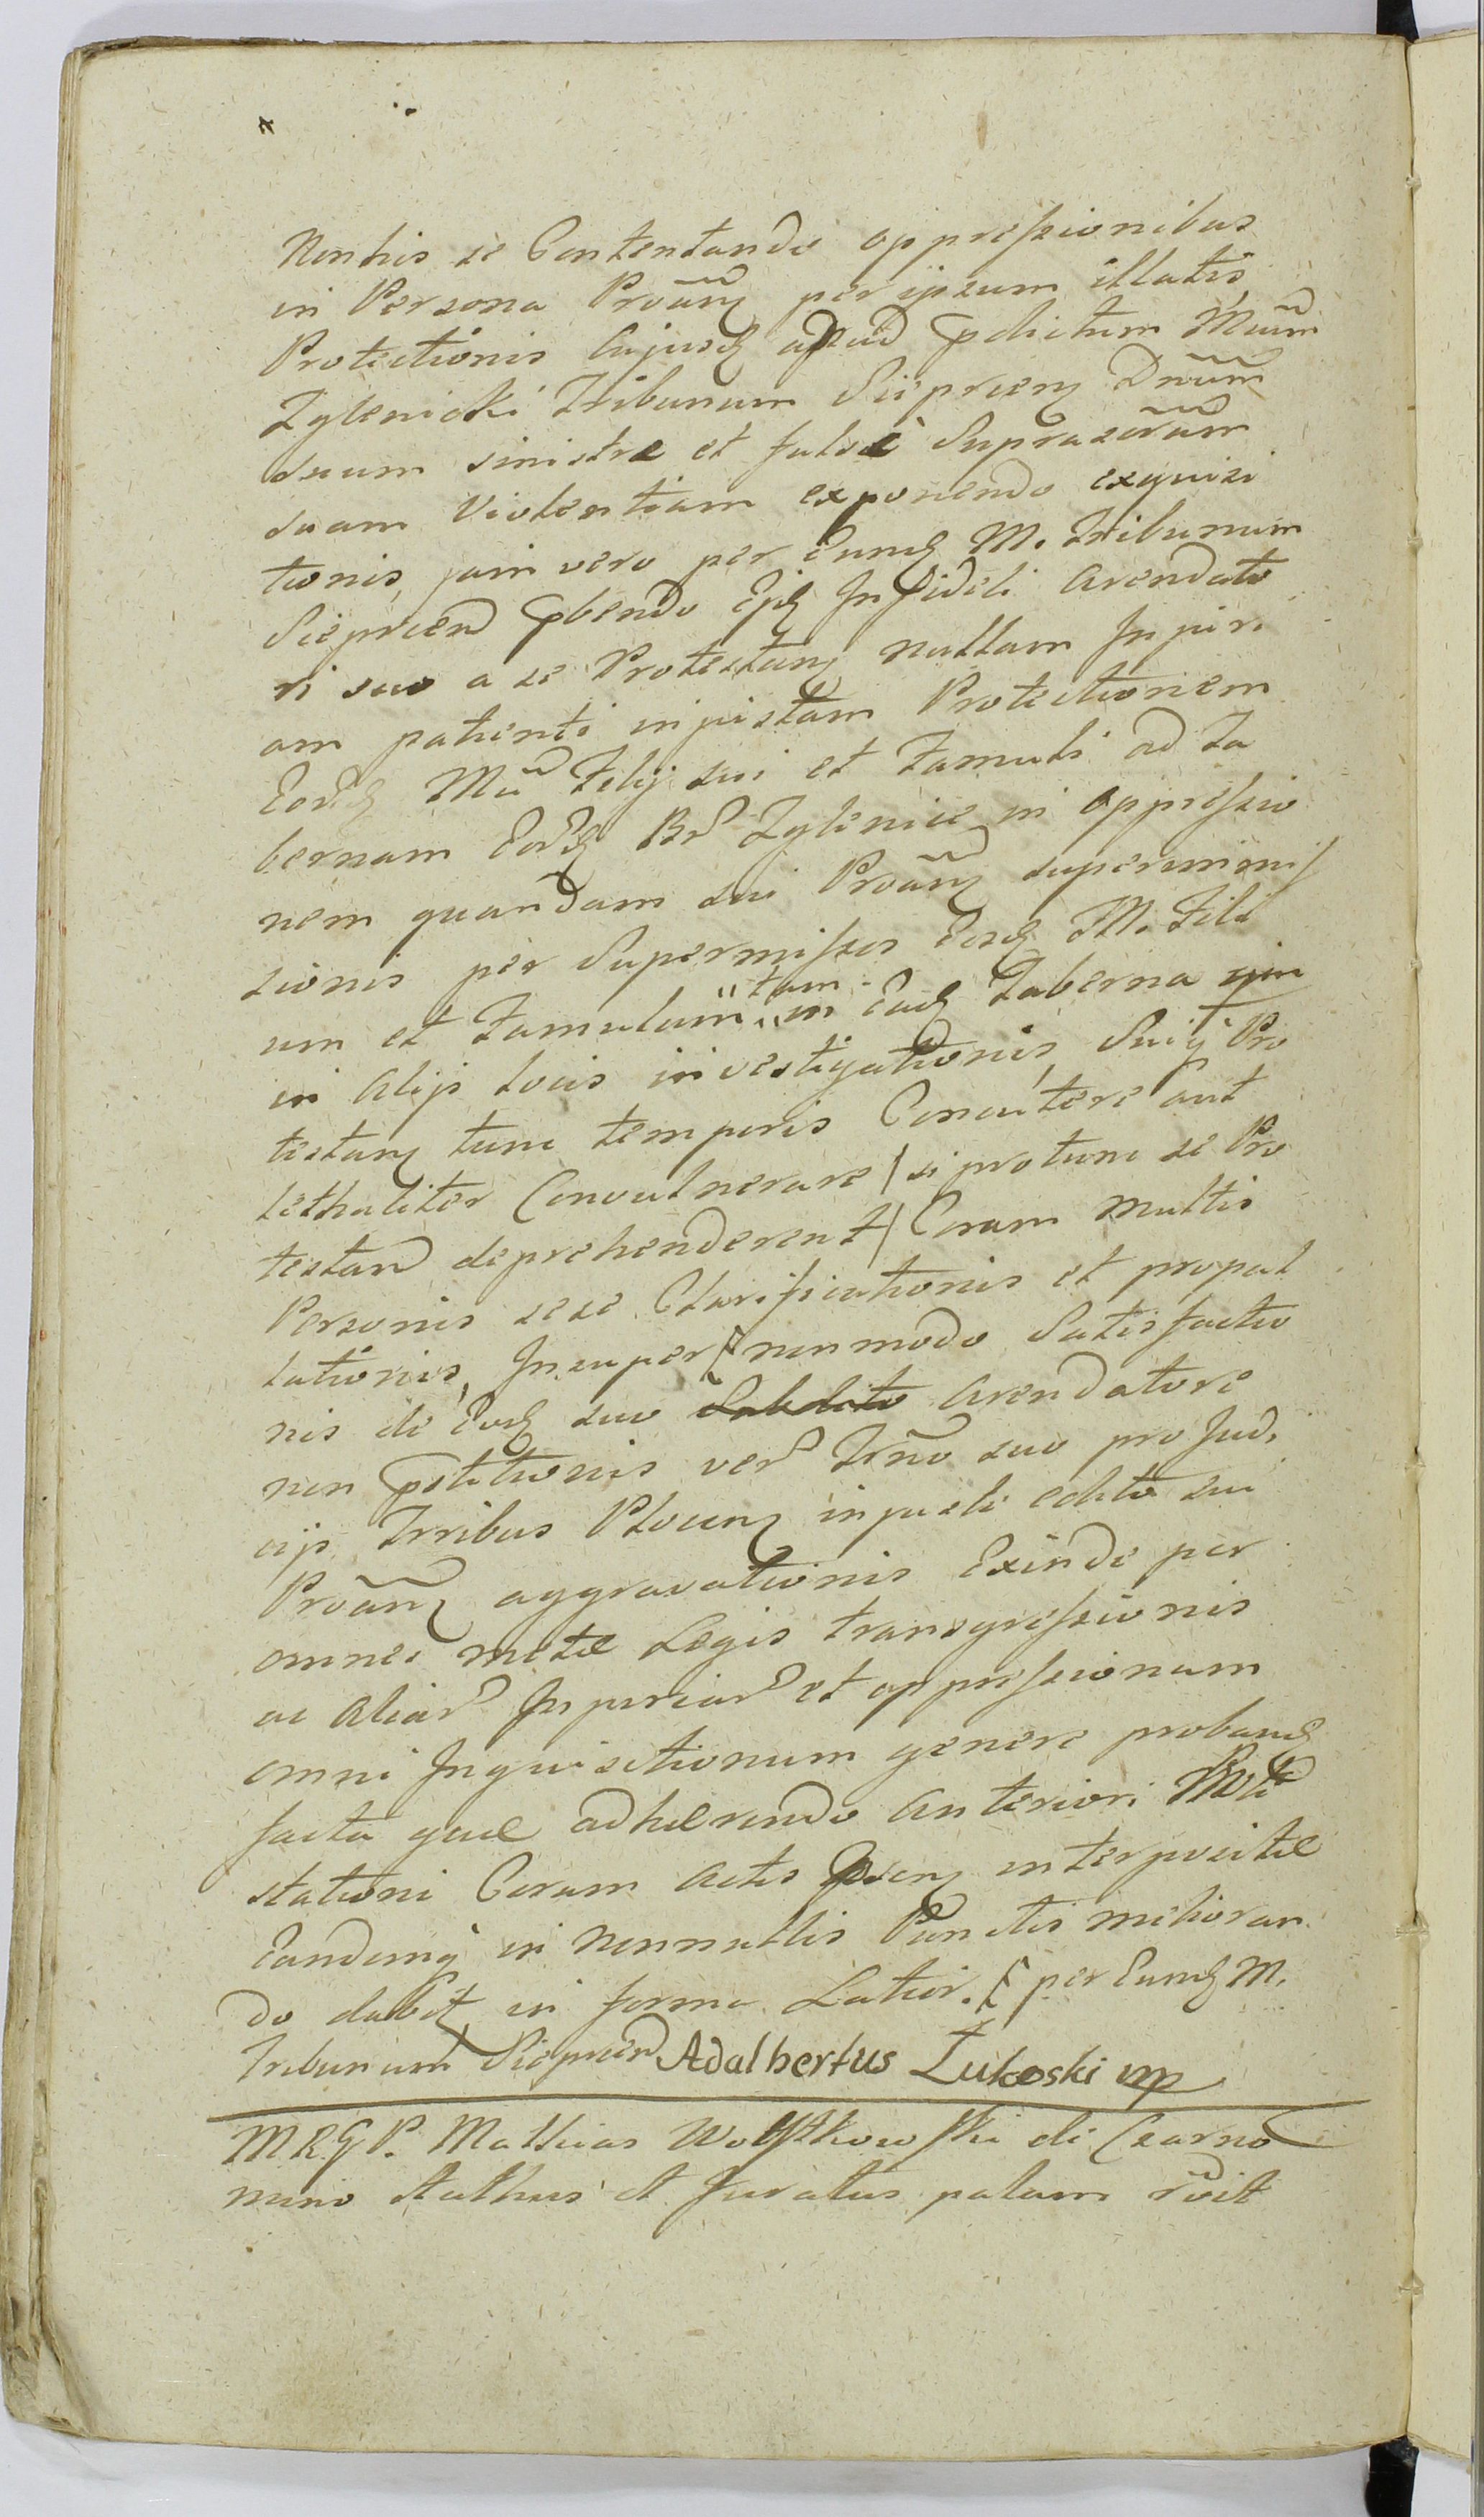 Non his se Contentando oppressionibus
in Persona Proãn per ipsum illatis
Protectionis Cujusd apud pdictum Mũum
Zglenicki Tribunum Siepricen Dnũm
suum sinistre et false Suprascrãm
suam violentiam exponendo exquisi
tionis, jam vero per Eund M. Tribunum
Siepricen pbendo Ejd Infideli Arendato
ri suo a se Protestan nullam Injuri
am patienti injustam Protectionem
Eord Mũ Filij sui et Famuli ad Ta
bernam Eord Br Zglenice in oppressio
nem quandam sui Proãn supermis
sionis per Supermissos Eosd M. Fili
um et Famulum tam in Ead Taberna qm
in alijs locis investigationis Suiq Pro
testan tunc temporis Concutere aut
lethaliter Convulnerare / si protunc se Pro
testan deprehenderent / Coram multis
Personis sese Clarificationis et propal
lationis, Insuper non modo Satisfactio
nis de Eod suo Subdito Arendatore
non pstitionis ver Trño suo pro Judi
cijs Trribus Plocen injuste edito sui
Proãn aggravationis Exinde per
omnes metæ Legis transgressionis
ac Aliar Injuriar et oppressionum
omni Inquisitionum genere proband
facta quæ adhærendo Anteriori Prote
stationi Coram Actis psen interpositæ
Eandemq in nonnullis Punctis melioran
do dabit in forma Latior. per Eund M.
Tribunum Siepricen Adalbertus Łukoski mp
MRGP. Mathias Wolsztkowski de Czarno
mino stathus et Juratus palam rõit